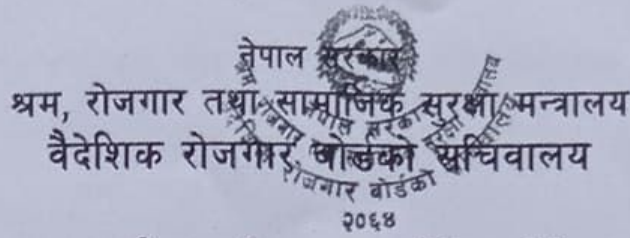 नेपाल सरकार
श्रम, रोजगार तथा सामाजिक सुरक्षा मन्त्रालय
वैदेशिक रोजगार बोर्डको सचिवालय
रोजगार बोर्डको
२०६४